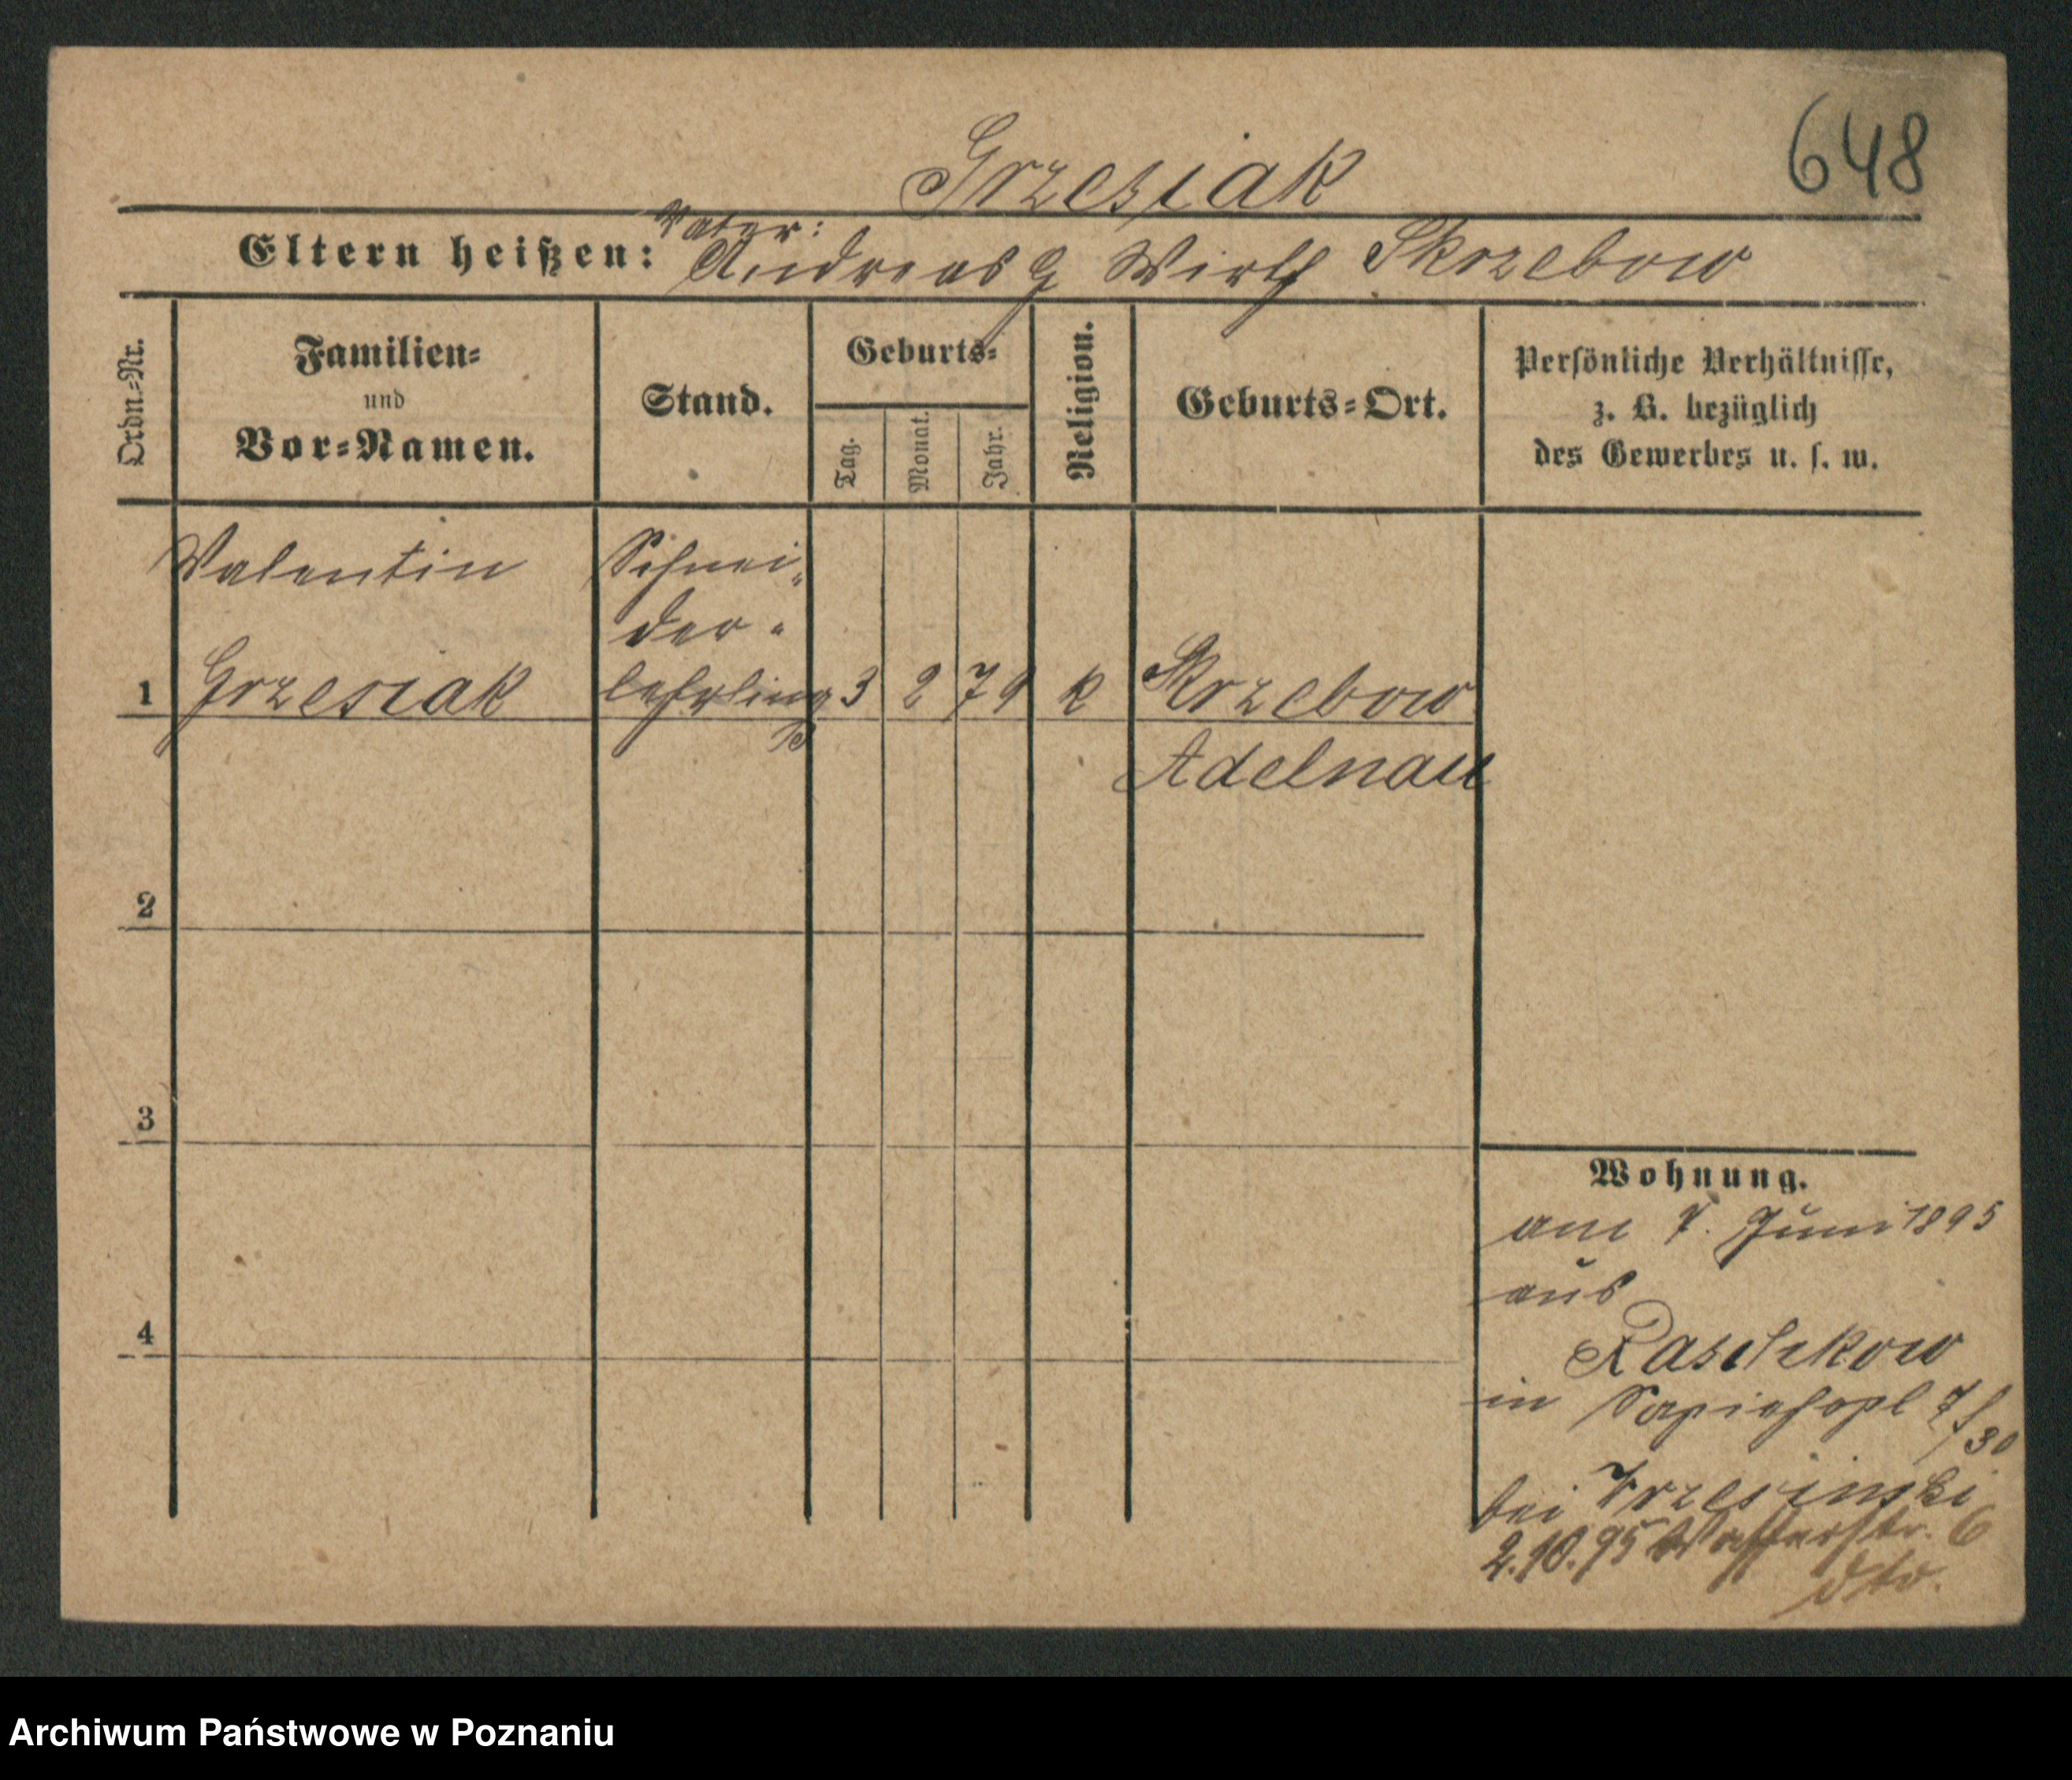 648
Grzesiak
Vater:
Eltern heißen: Andreas G Wirth Skrzebow
Ordn.=Nr.
Familien=
und
Vor=Namen.
Stand.
Geburts=
Tag.
Monat.
Jahr.
Religion.
Geburts=Ort.
Persönliche Verhältnisse,
z. B. bezüglich
des Gewerbes u. s. w.
Valentin
Schnei-
der-
1 Grzesiak lehrling 3 2 79 k Skrzebow
Adelnau
2
3
4
Wohnung.
am 7. Juni 1895
aus
Raschkow
in Sapiehapl 7/30
bei
2.10.95 Wasserstr. 6
dto.
Archiwum Państwowe w Poznaniu